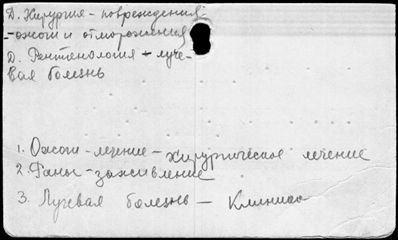 Д. Хирургия - повреждения -
- ожоги и отморожения
Д. Рентгенология + луче-
вая болезнь
1. Ожоги - лечение - хирургическое лечение
2. Раны - заживление
3. Лучевая болезнь - Клиника